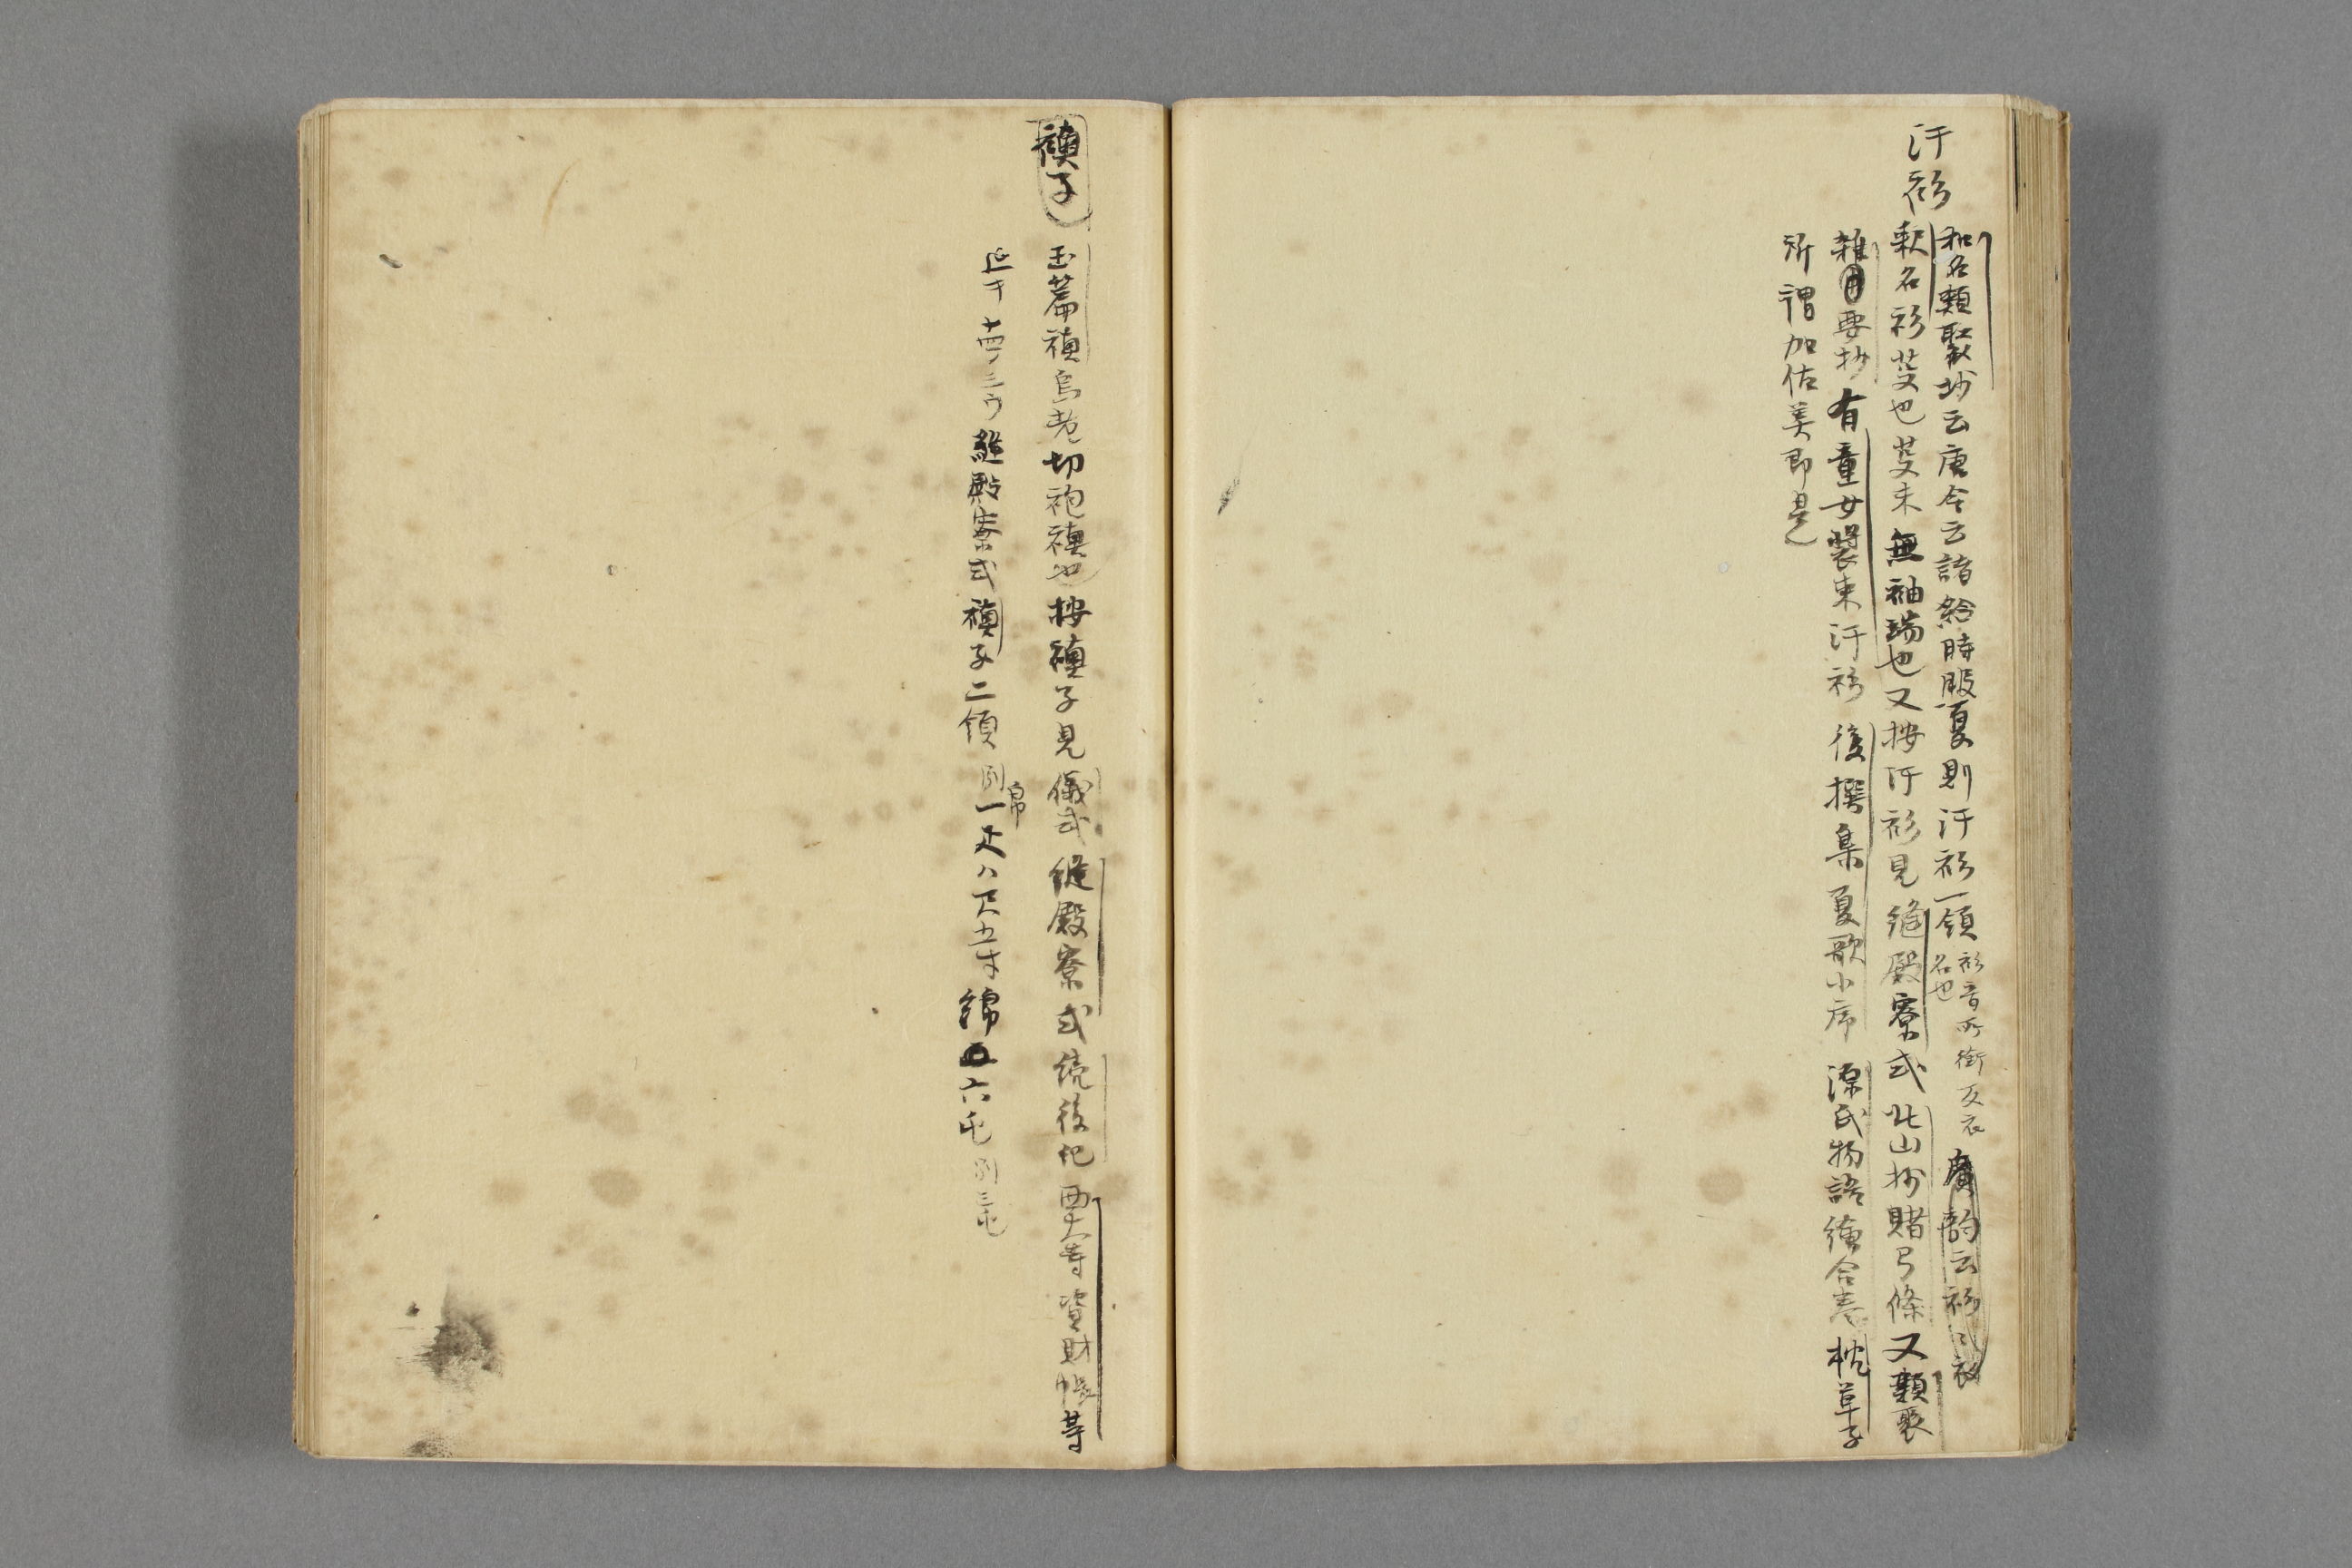 汗衫
和名類聚抄云唐令云諸給時服夏則汗衫一領
衫音所銜反衣
名也
廣韵云衫小衣
釈名衫芟也芟末無袖端也又按汗衫見縫殿寮式北山抄賭弓條又類聚
雜要抄有童女装束汗衫後撰集夏歌小序源氏物語繪合巻枕草子
所謂加佐美即是
襖子
玉篇襖烏老切袍襖也按襖子見儀式縫殿寮式続後紀西大寺資財帳等
延十四ノ三ウ縫殿寮式襖子二領
別帛
一疋八尺五寸綿六屯
別三屯